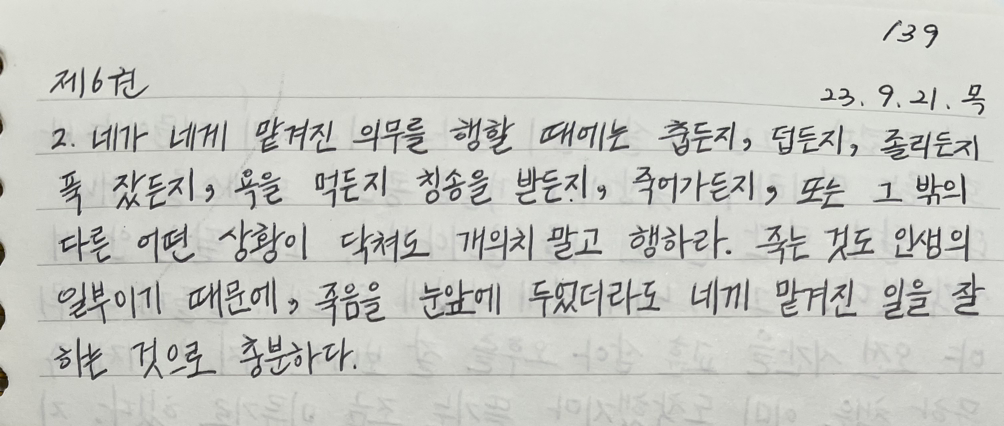 139
제6권
23. 9. 21. 목
2. 네가 네게 맡겨진 의무를 행할 때에는 춥든지, 덥든지, 졸리든지
푹 잤든지, 욕을 먹든지 칭송을 받든지, 죽어가든지, 또는 그 밖의
다른 어떤 상황이 닥쳐도 개의치 말고 행하라. 죽는 것도 인생의
일부이기 때문에, 죽음을 눈앞에 두었더라도 네게 맡겨진 일을 잘
하는 것으로 충분하다.